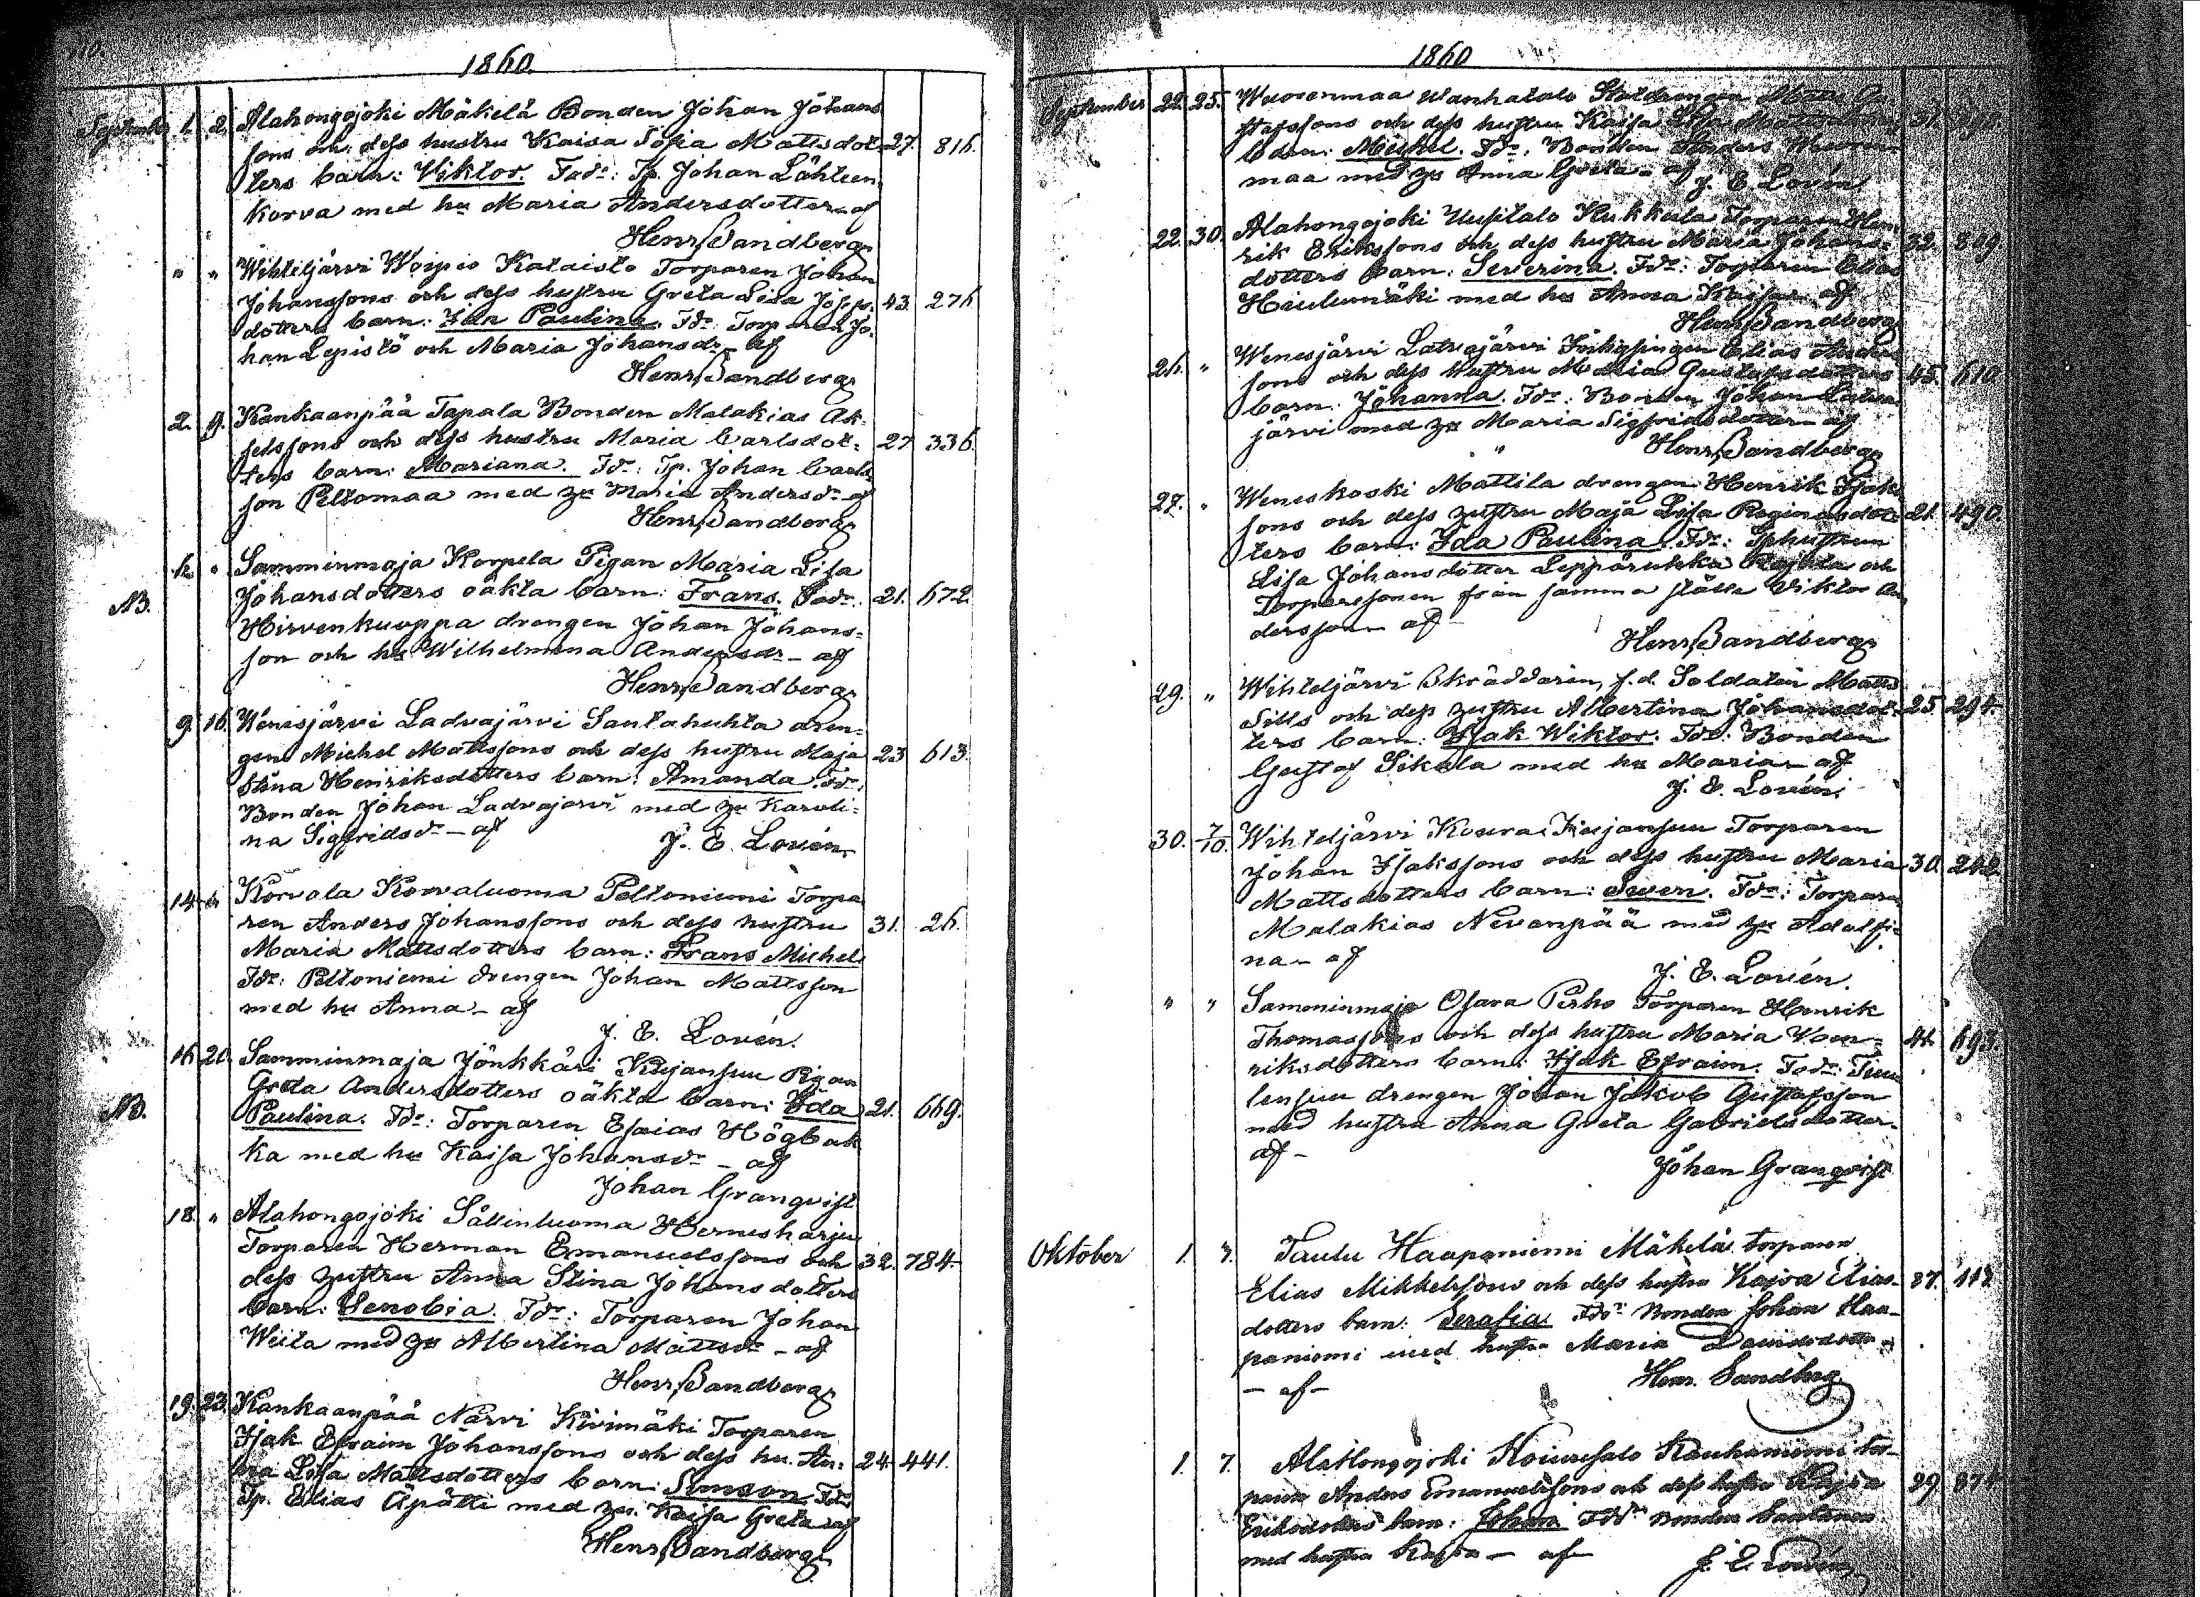 110.
1860.
September 1. 2. Alahongojoki Mäkelä Bonden Johan Johans
sons och dess hustru Kaisa Sofia Mattsdot- 27. 816.
ters barn: Wiktor. Fadr: Tp. Johan Lähteen
korva med hu Maria Andersdotter – af
Henr. Sandberg
" " Wihteljärvi Weipio Kataisto Torparen Johan
Johanssons och dess hustru Greta Lisa Josefs- 43. 276.
dotters barn: Ida Paulina. Fdr: Torparen Jo-
han Lepistö och Maria Johansdr – af
Henr. Sandberg
2. 9. Kankaanpää Tapala Bonden Malakias Ak-
selssons och dess hustru Maria Carlsdot- 27 336.
ters barn: Mariana. Fdr: Tp. Johan Carls-
son Peltomaa med hu Maria Andersdr – af
Henr. Sandberg
6. " Samminmaja Korpela Pigan Maria Lisa
NB. Johansdotters oäkta barn: Frans. Fadr: 21. 672.
Hirvenkuoppa drengen Johan Johans-
son och hu Wilhelmina Andersdr – af
Henr. Sandberg
9. 16. Wenesjärvi Ladvajärvi Santahuhta dren-
gens Michel Mattssons och dess hustru Maja 23 613.
Stina Henriksdotters barn: Amanda. Fdr:
Bonden Johan Ladvajärvi med hu Karoli-
na Sigfridsdr – af
J. E. Lovén.
14. " Korvala Korvaluoma Peltoniemi Torpa
ren Anders Johanssons och dess hustru 31. 26.
Maria Mattsdotters barn: Frans Michel
Fdr: Peltoniemi drengen Johan Mattsson
med hu Anna – af
J. E. Lovén.
16. 20. Samminmaja Jönkkäri Kujansuu Pigan
NB. Greta Andersdotters oäkta barn: Ida 21. 669.
Paulina. Fdr: Torparen Esaias Högbak
ka med hu Kaisa Johansdr – af
Johan Granqvist
18. " Alahongojoki Sällinluoma Hernesharju
Torparen Herman Emanuelssons och 32. 784.
dess hustru Anna Stina Johansdotters
barn: Senobia. Fdr: Torparen Johan
Weita med hu Albertina Mattsdr – af
Henr. Sandberg
19. 23. Kankaanpää Narvi Kivimäki Torparen
Isak Efraim Johanssons och dess hu. An- 24 441.
na Lisa Mattsdotters barn: Simson. Fdr:
Tp. Elias Äpätti med hu. Kaisa Greta – af
Henr. Sandberg
1860
September 22. 25. Wuorenmaa Wanhatalo Statdrengen Matts Gu
stafssons och dess hustru Kaisa Lisa
barn: Michel. Fdr: Bonden Anders Wuoren-
maa med hu Anna Greta – af
J. E. Lovén
22. 30. Alahongojoki Uusitalo Kukkula Torparen Hen
rik Erikssons och dess hustru Maria Johans- 32. 809.
dotters barn: Severina. Fdr: Torparen Elias
Hiulumäki med hu Anna Kaisa – af
Henr. Sandberg
26. " Wenesjärvi Latvajärvi Inhysingen Elias Anders
sons och dess hustru Maria Gustafsdotters 45. 610.
barn: Johanna. Fdr: Bonden Johan Latva
järvi med hu Maria Sigfridsdotter – af
Henr. Sandberg
27. " Weneskoski Mattila drengen Henrik Isaks
sons och dess hustru Maja Lisa Reginasdot- 21. 490.
ters barn: Ida Paulina. Fdr: Tphustrun
Lisa Johansdotter Leppärukka och
Torparesonen från samma ställe Viktor An
dersson – af
Henr. Sandberg
29. " Wihteljärvi Skräddaren, f.d. Soldaten Matts
Sills och dess hustru Albertina Johansdot- 25. 294.
ters barn: Isak Wiktor. Fdr: Bonden
Gustaf Sikala med hu Maria – af
J. E. Lovén.
30. 7/10. Wihteljärvi Koura Kujansuu Torparen
Johan Isakssons och dess hustru Maria 30. 242.
Mattsdotters barn: Sven. Fdr: Torparen
Malakias Nevanpää med hu Adolfi-
na – af
J. E. Lovén.
" " Samminmaja Osara Perho Torparen Henrik
Thomassons och dess hustru Maria Hen- 44. 693.
riksdotters barn: Isak Efraim. Fadr:
drengen Johan Jakob Gustafsson
med hustru Anna Greta Gabrielsdotter.
af –
Johan Granqvist
Oktober 1. 3. Taulu Haapaniemi Mäkelä torparen
Elias Mikkelssons och dess hustru Kajsa Elias- 37. 118.
dotters barn: Serafia. Fdr: Bonden Johan Haa-
paniemi med hustru Maria Davidsdotter
– af –
Henr. Sandberg
1. 7. Alahongojoki Koiuresalo Rauhaniemi tor-
paren Anders Emanuelssons och dess hustru Kajsa 39. 874
Eriksdotters barn: Johan. Fdr: Bonden Santanen
med hustru Kajsa – af
J. E. Lovén